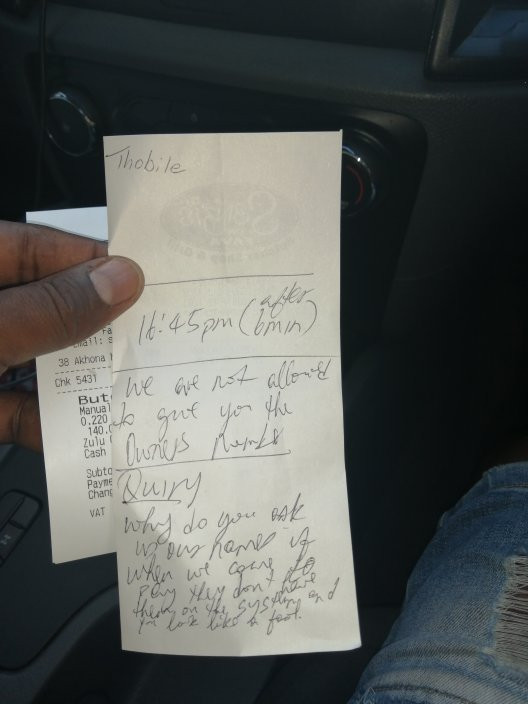 Thobile
16:45pm (after
6min)
we are not allowed
to give you the
Owners names
Quiry
why do you ask
us our names if
when we come to
pay they don't have
them on the system and
you look like a fool.
38 Akhona
Chk 5431
But
Manua
0.220
140.
Zulu
Cash
Subto
Payme
Chang
VAT